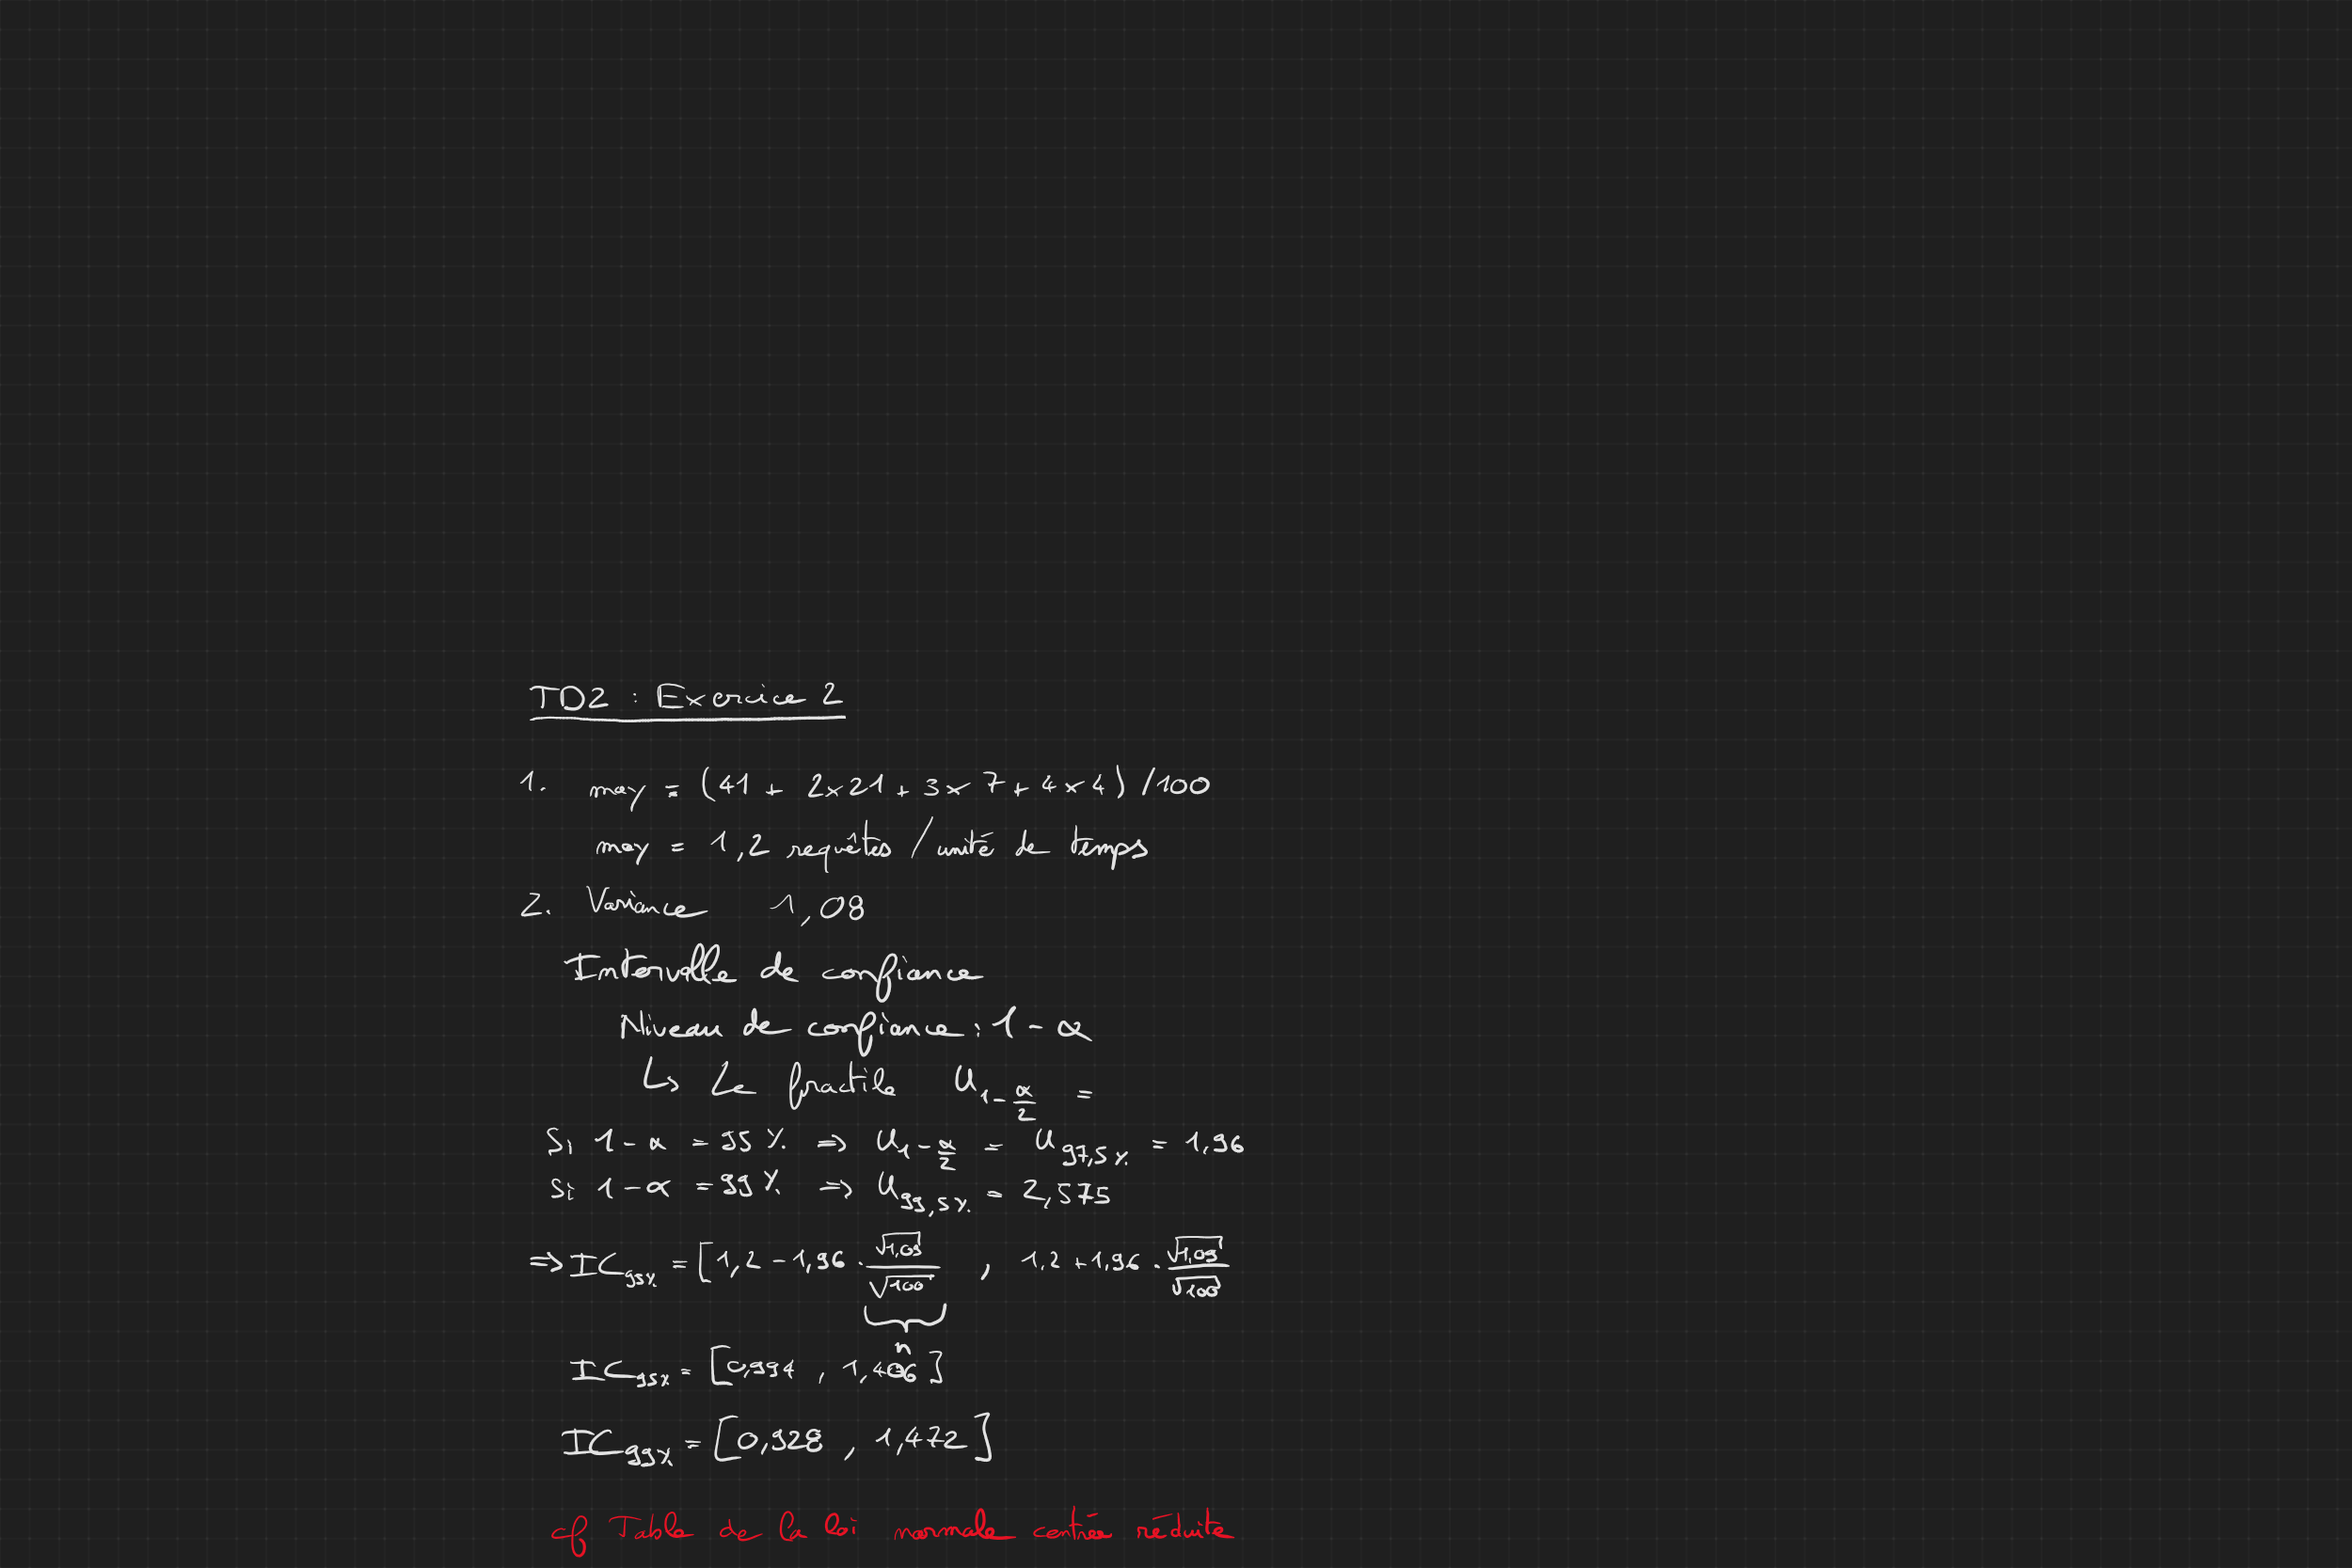 TD2 : Exercice 2
1. moy = (41 + 2×21 + 3×7 + 4×4) /100
moy = 1,2 requêtes / unité de temps
2. Variance 1,08
Intervalle de confiance
Niveau de confiance : 1 - α
↳ Le fractile U_{1-α/2} =
Si 1 - α = 95 % => U_{1-α/2} = U_{97,5 %} = 1,96
Si 1 - α = 99 % => U_{99,5 %} = 2,575
=> IC_{95%} = [1,2 - 1,96 · √1,09 / √100 , 1,2 + 1,96 · √1,09 / √100
n
IC_{95%} = [0,994 , 1,406]
IC_{99%} = [0,928 , 1,472]
cf Table de la loi normale centrée réduite